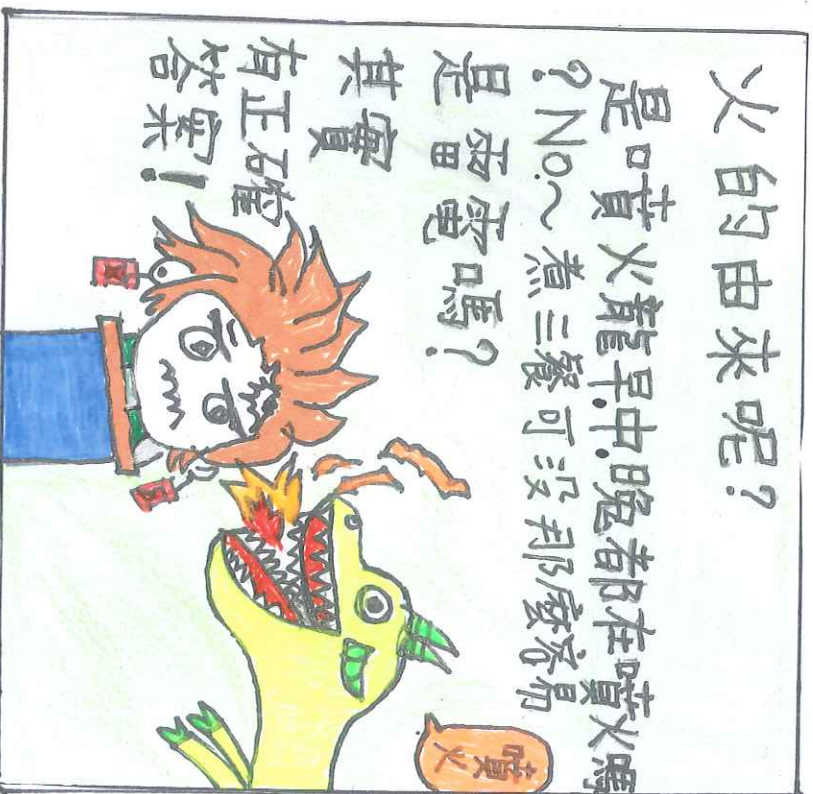 火的由來呢?
是噴火龍早.中.晚都在噴火嗎
?No.~煮三餐可沒那麼容易
是雷電嗎?
其實
有正確
答案!
噴火